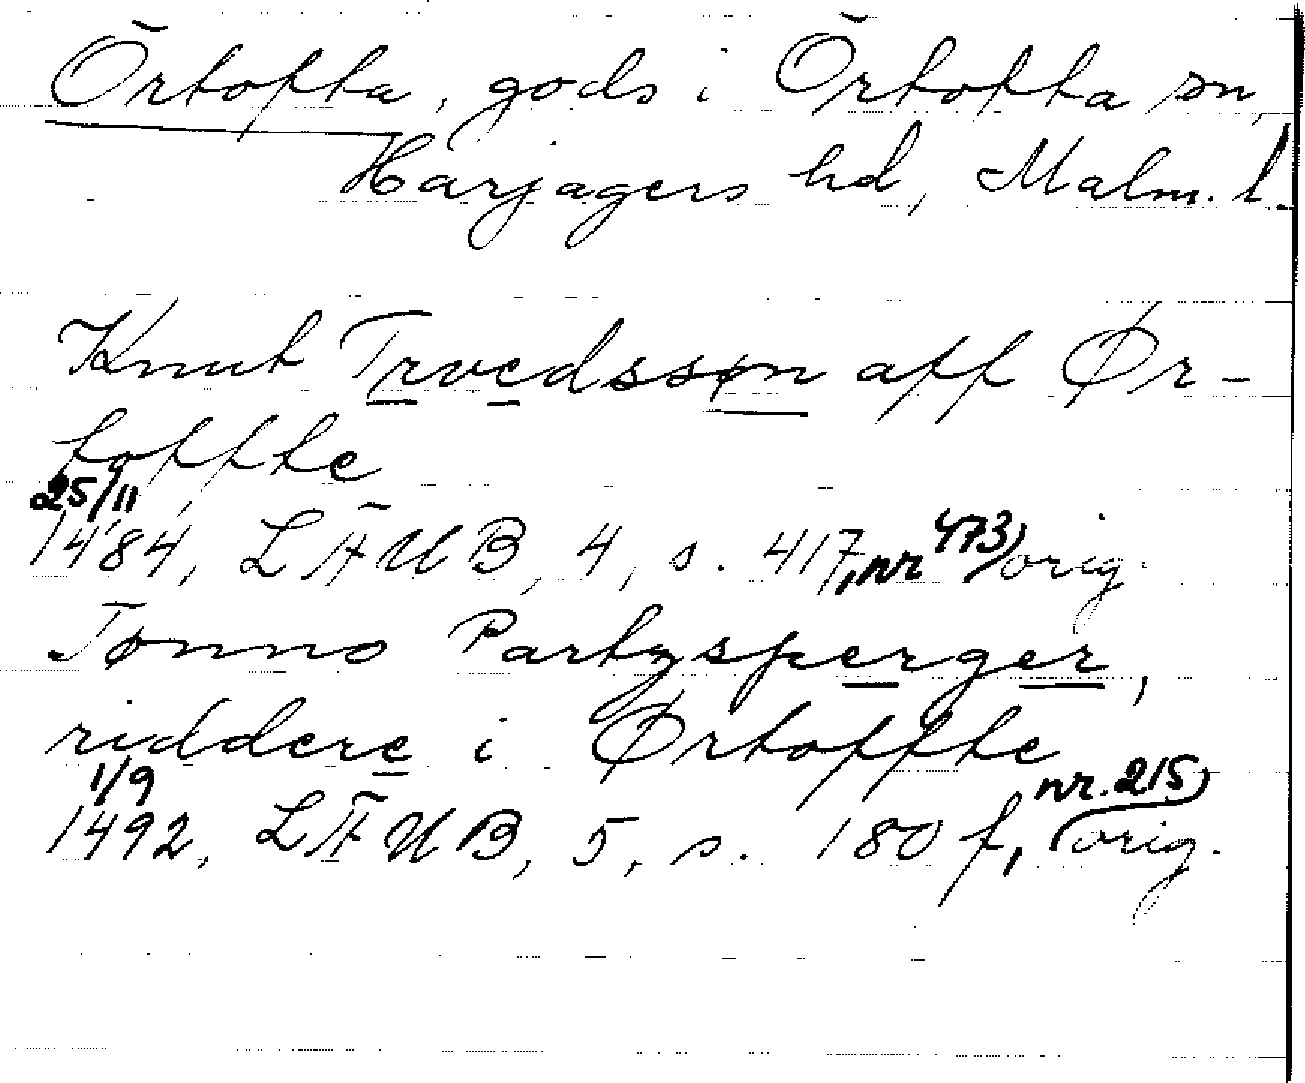 Örtofta, gods i Örtofta sn,
Harjagers hd, Malm. l.
Knut Trvedssøn aff Ør-
toffte
25/11
1484, LÄUB, 4, s. 417, nr 473, orig.
Tønno Partzsperger,
riddere i Ørtoffte
1/9
1492, LÄUB, 5, s. 180 f, nr. 215, orig.